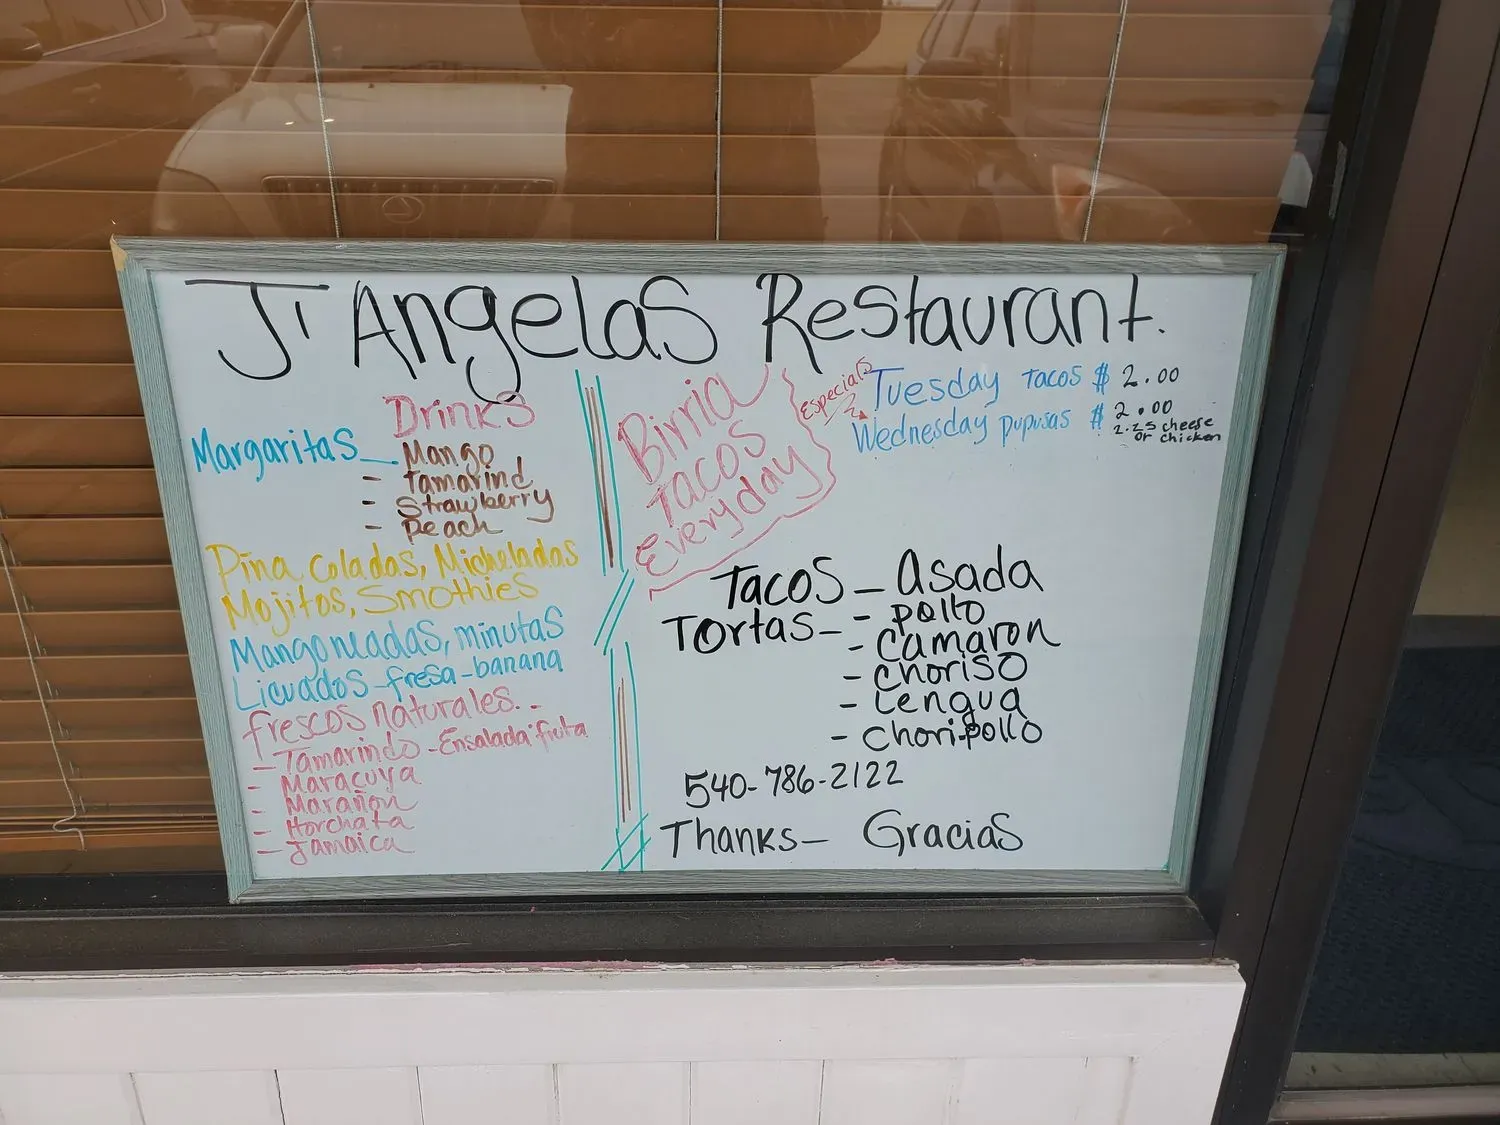 J' Angelas Restaurant.
Drinks
Margaritas - Mango
- Tamarind
- Strawberry
- Peach
Pina Coladas, Micheladas
Mojitos, Smothies
Mangoneadas, minutas
Licuados - fresa - banana
frescos naturales. -
- Tamarindo - Ensalada fruta
- Maracuya
- Marañon
- Horchata
- Jamaica
Birria
Tacos
Everyday
Especials
Tuesday Tacos $ 2.00
Wednesday pupusas $ 2.00
2.25 cheese
or chicken
Tacos - Asada
Tortas - - pollo
- Camaron
- Choriso
- Lengua
- Choripollo
540-786-2122
Thanks - Gracias